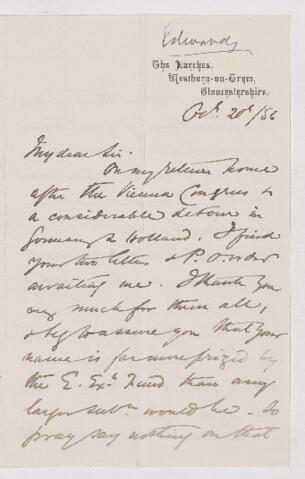 Edwards
The Larches,
Westbury-on-Trym,
Gloucestershire.
Oct. 20th/86
My dear Sir.
On my return home
after the Vienna Congress &
a considerable detour in
Germany & Holland. I find
your two letters & P.O order
awaiting me. I thank you
very much for them all,
& beg to assure you that your
name is far more prized by
the E. Exn. Fund than any
larger subn. would be. So
pray say nothing on that